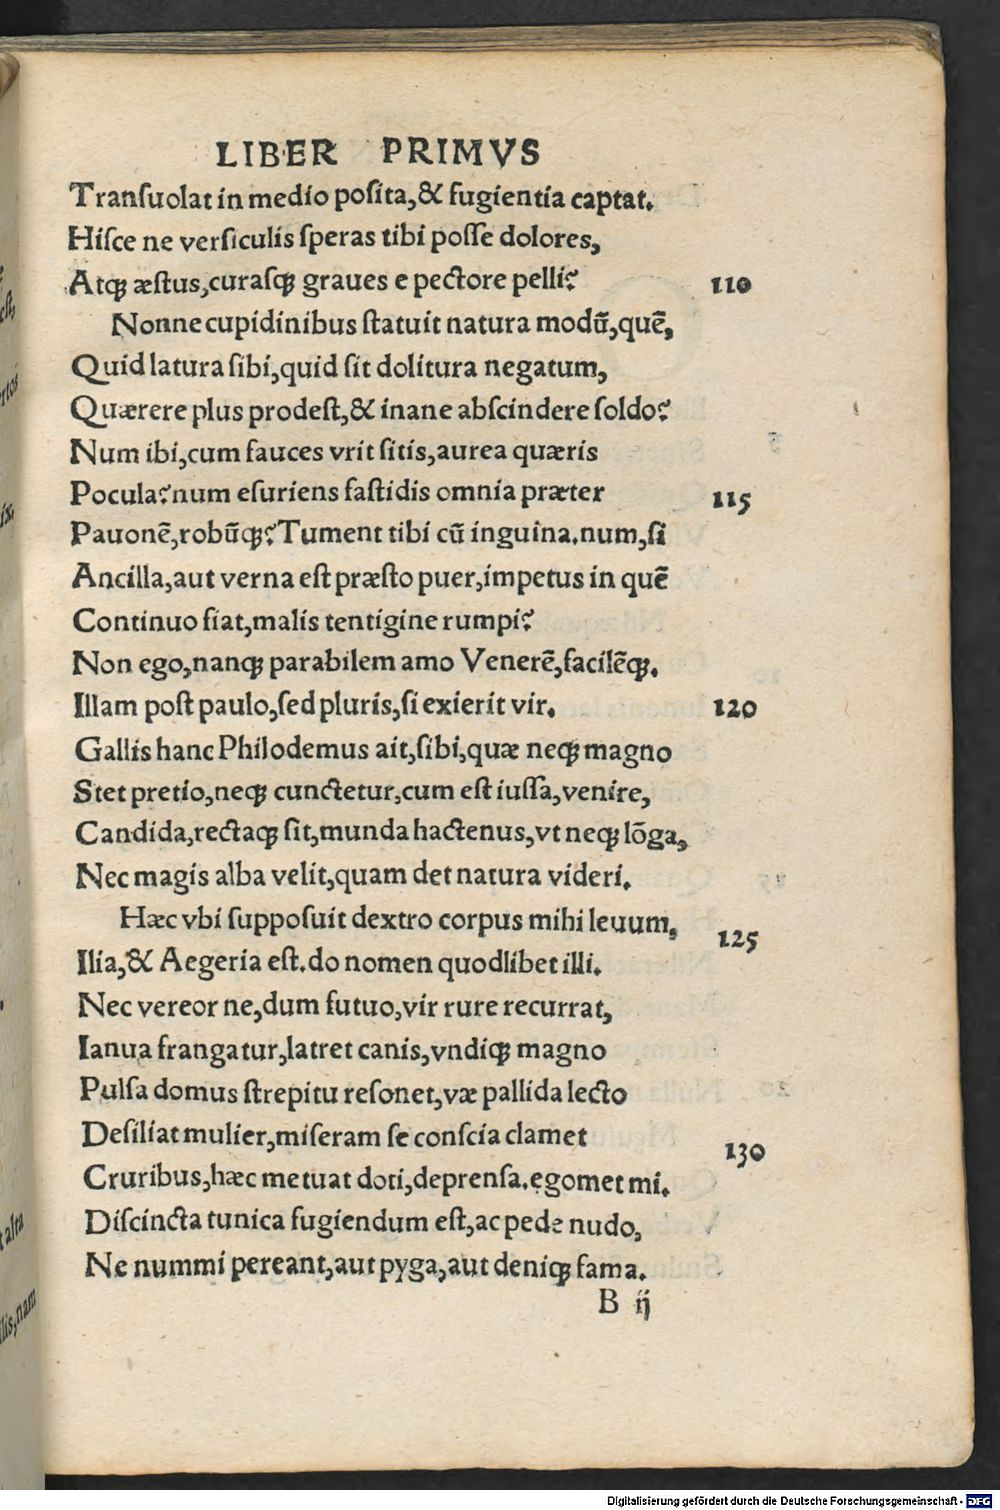 LIBER PRIMVS
Tranſuolat in medio poſita,& fugientia captat.
Hiſce ne verſiculis ſperas tibi poſſe dolores,
Atqꝫ æſtus,curaſqꝫ graues e pectore pelli? 110
Nonne cupidinibus ſtatuit natura modū,quē,
Quid latura ſibi,quid ſit dolitura negatum,
Quærere plus prodeſt,& inane abſcindere ſoldo?
Num ibi,cum fauces vrit ſitis,aurea quæris
Pocula?num eſuriens faſtidis omnia præter 115
Pauonē,robūqꝫ?Tument tibi cū inguina.num,ſi
Ancilla,aut verna eſt præſto puer,impetus in quē
Continuo fiat,malis tentigine rumpi?
Non ego,nanqꝫ parabilem amo Venerē,facilēqꝫ.
Illam poſt paulo,ſed pluris,ſi exierit vir. 120
Gallis hanc Philodemus ait,ſibi,quæ neqꝫ magno
Stet pretio,neqꝫ cunctetur,cum eſt iuſſa,venire,
Candida,rectaqꝫ ſit,munda hactenus,vt neqꝫ lōga,
Nec magis alba velit,quam det natura videri.
Hæc vbi ſuppoſuit dextro corpus mihi leuum, 125
Ilia,& Aegeria eſt.do nomen quodlibet illi.
Nec vereor ne,dum futuo,vir rure recurrat,
Ianua frangatur,latret canis,vndiqꝫ magno
Pulſa domus ſtrepitu reſonet,væ pallida lecto
Deſiliat mulier,miſeram ſe conſcia clamet 130
Cruribus,hæc metuat doti,deprenſa.egomet mi.
Diſcincta tunica fugiendum eſt,ac pede nudo,
Ne nummi pereant,aut pyga,aut deniqꝫ fama.
B ij
Digitalisierung gefördert durch die Deutsche Forschungsgemeinschaft - DFG